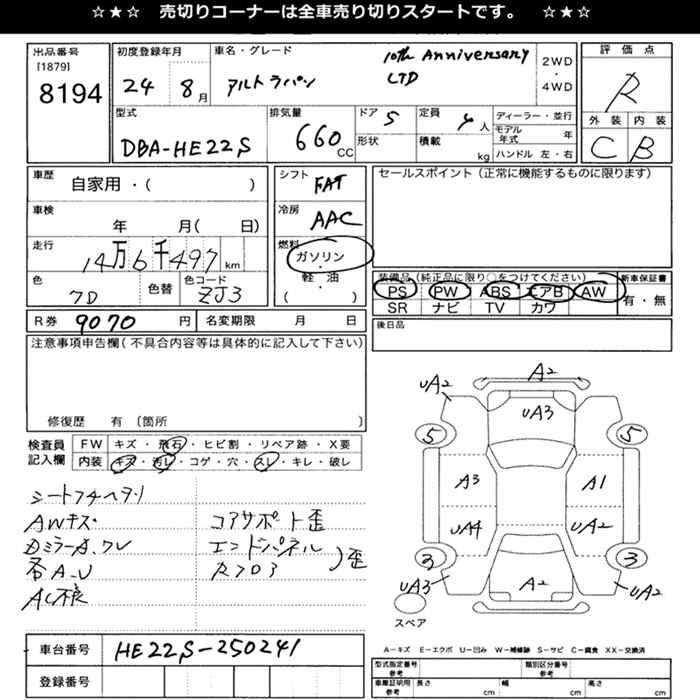 ☆★☆ 売切りコーナーは全車売り切りスタートです。 ☆★☆
出品番号
[1879]
8194
初度登録年月
24 8月
車名・グレード
アルトラパン
10th Anniversary
LTD
2WD
・
4WD
評価点
R
外装 内装
C B
型式
DBA-HE22S
排気量
660CC
ドア 5
形状
定員
4人
積載
kg
ディーラー・並行
モデル年式 年
ハンドル 左・右
車歴
自家用・( )
車検
年 月( 日)
走行
14万6千497km
色
色替
色コード
ZJ3
シフト
FAT
冷房
AAC
燃料
ガソリン
・
軽・油
( )
セールスポイント(正常に機能するものに限ります)
装備品(純正品に限り○をつけてください)
PS PW ABS エアB AW
SR ナビ TV カワ
新車保証書
有・無
R券 9070円
名変期限 月 日
後日品
注意事項申告欄(不具合内容等は具体的に記入して下さい)
修復歴 有 〔箇所 〕
検査員
記入欄
FW キズ・飛石・ヒビ割・リペア跡・X要
内装 キズ・汚レ・コゲ・穴・スレ・キレ・破レ
シートフチヘタリ
AWキズ
コアサポート歪
エンドパネル
歪
各A.U
AC不良
A2
UA2
UA3
5
5
A3
A1
UA4
UA2
3
3
UA3
A2
UA2
スペア
A−キズ E−エクボ U−凹み W−補修跡 S−サビ C−腐食 XX−交換済
車台番号
HE22S-250241
登録番号
型式指定番号
参考
類別区分番号
参考
車庫証明用
参考
長さ cm
幅 cm
高さ cm